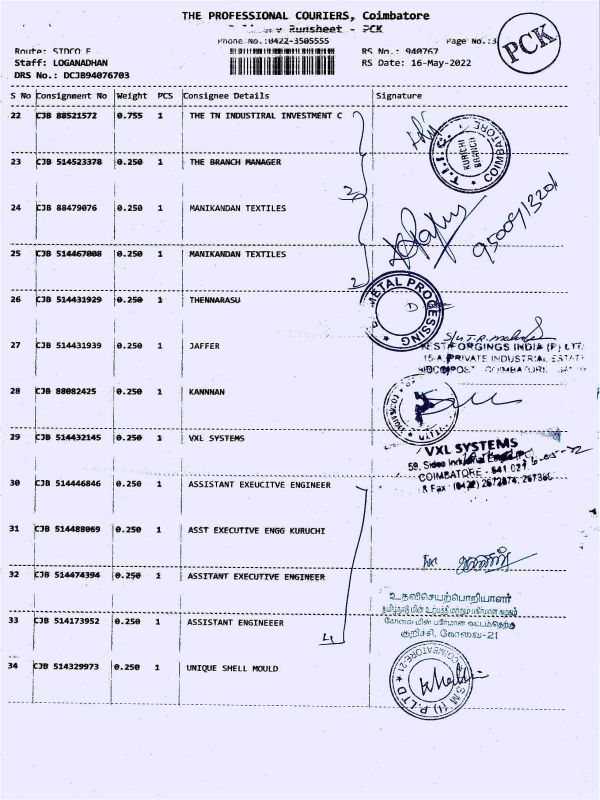 THE PROFESSIONAL COURIERS, Coimbatore
Runsheet - PCK
Phone No.:0422-3505555 Page No.:3
PCK
Route: SIDCO E RS No.: 940767
Staff: LOGANADHAN RS Date: 16-May-2022
DRS No.: DCJB94076703
S No Consignment No Weight PCS Consignee Details Signature
22 CJB 88521572 0.755 1 THE TN INDUSTIRAL INVESTMENT C
T.I.I.C. COIMBATORE
KURICHI
BRANCH
23 CJB 514523378 0.250 1 THE BRANCH MANAGER
24 CJB 88479076 0.250 1 MANIKANDAN TEXTILES
9500913201
25 CJB 514467008 0.250 1 MANIKANDAN TEXTILES
2
26 CJB 514431929 0.250 1 THENNARASU
METAL PROCESSING
27 CJB 514431939 0.250 1 JAFFER
FORGINGS INDIA (P) LTD
15-A, PRIVATE INDUSTRIAL ESTATE
SIDCO POST COIMBATORE
28 CJB 88082425 0.250 1 KANNNAN
29 CJB 514432145 0.250 1 VXL SYSTEMS
VXL SYSTEMS
59, Sidco
COIMBATORE - 641 021
& Fax : (0422) 2672874,
30 CJB 514446846 0.250 1 ASSISTANT EXEUCITVE ENGINEER
31 CJB 514488069 0.250 1 ASST EXECUTIVE ENGG KURUCHI
32 CJB 514474394 0.250 1 ASSITANT EXECUTIVE ENGINEER
உதவிசெயற்பொறியாளர்
33 CJB 514173952 0.250 1 ASSISTANT ENGINEEER
குறிச்சி, கோவை-21
4
34 CJB 514329973 0.250 1 UNIQUE SHELL MOULD
COIMBATORE-21
SM (I) P.LTD